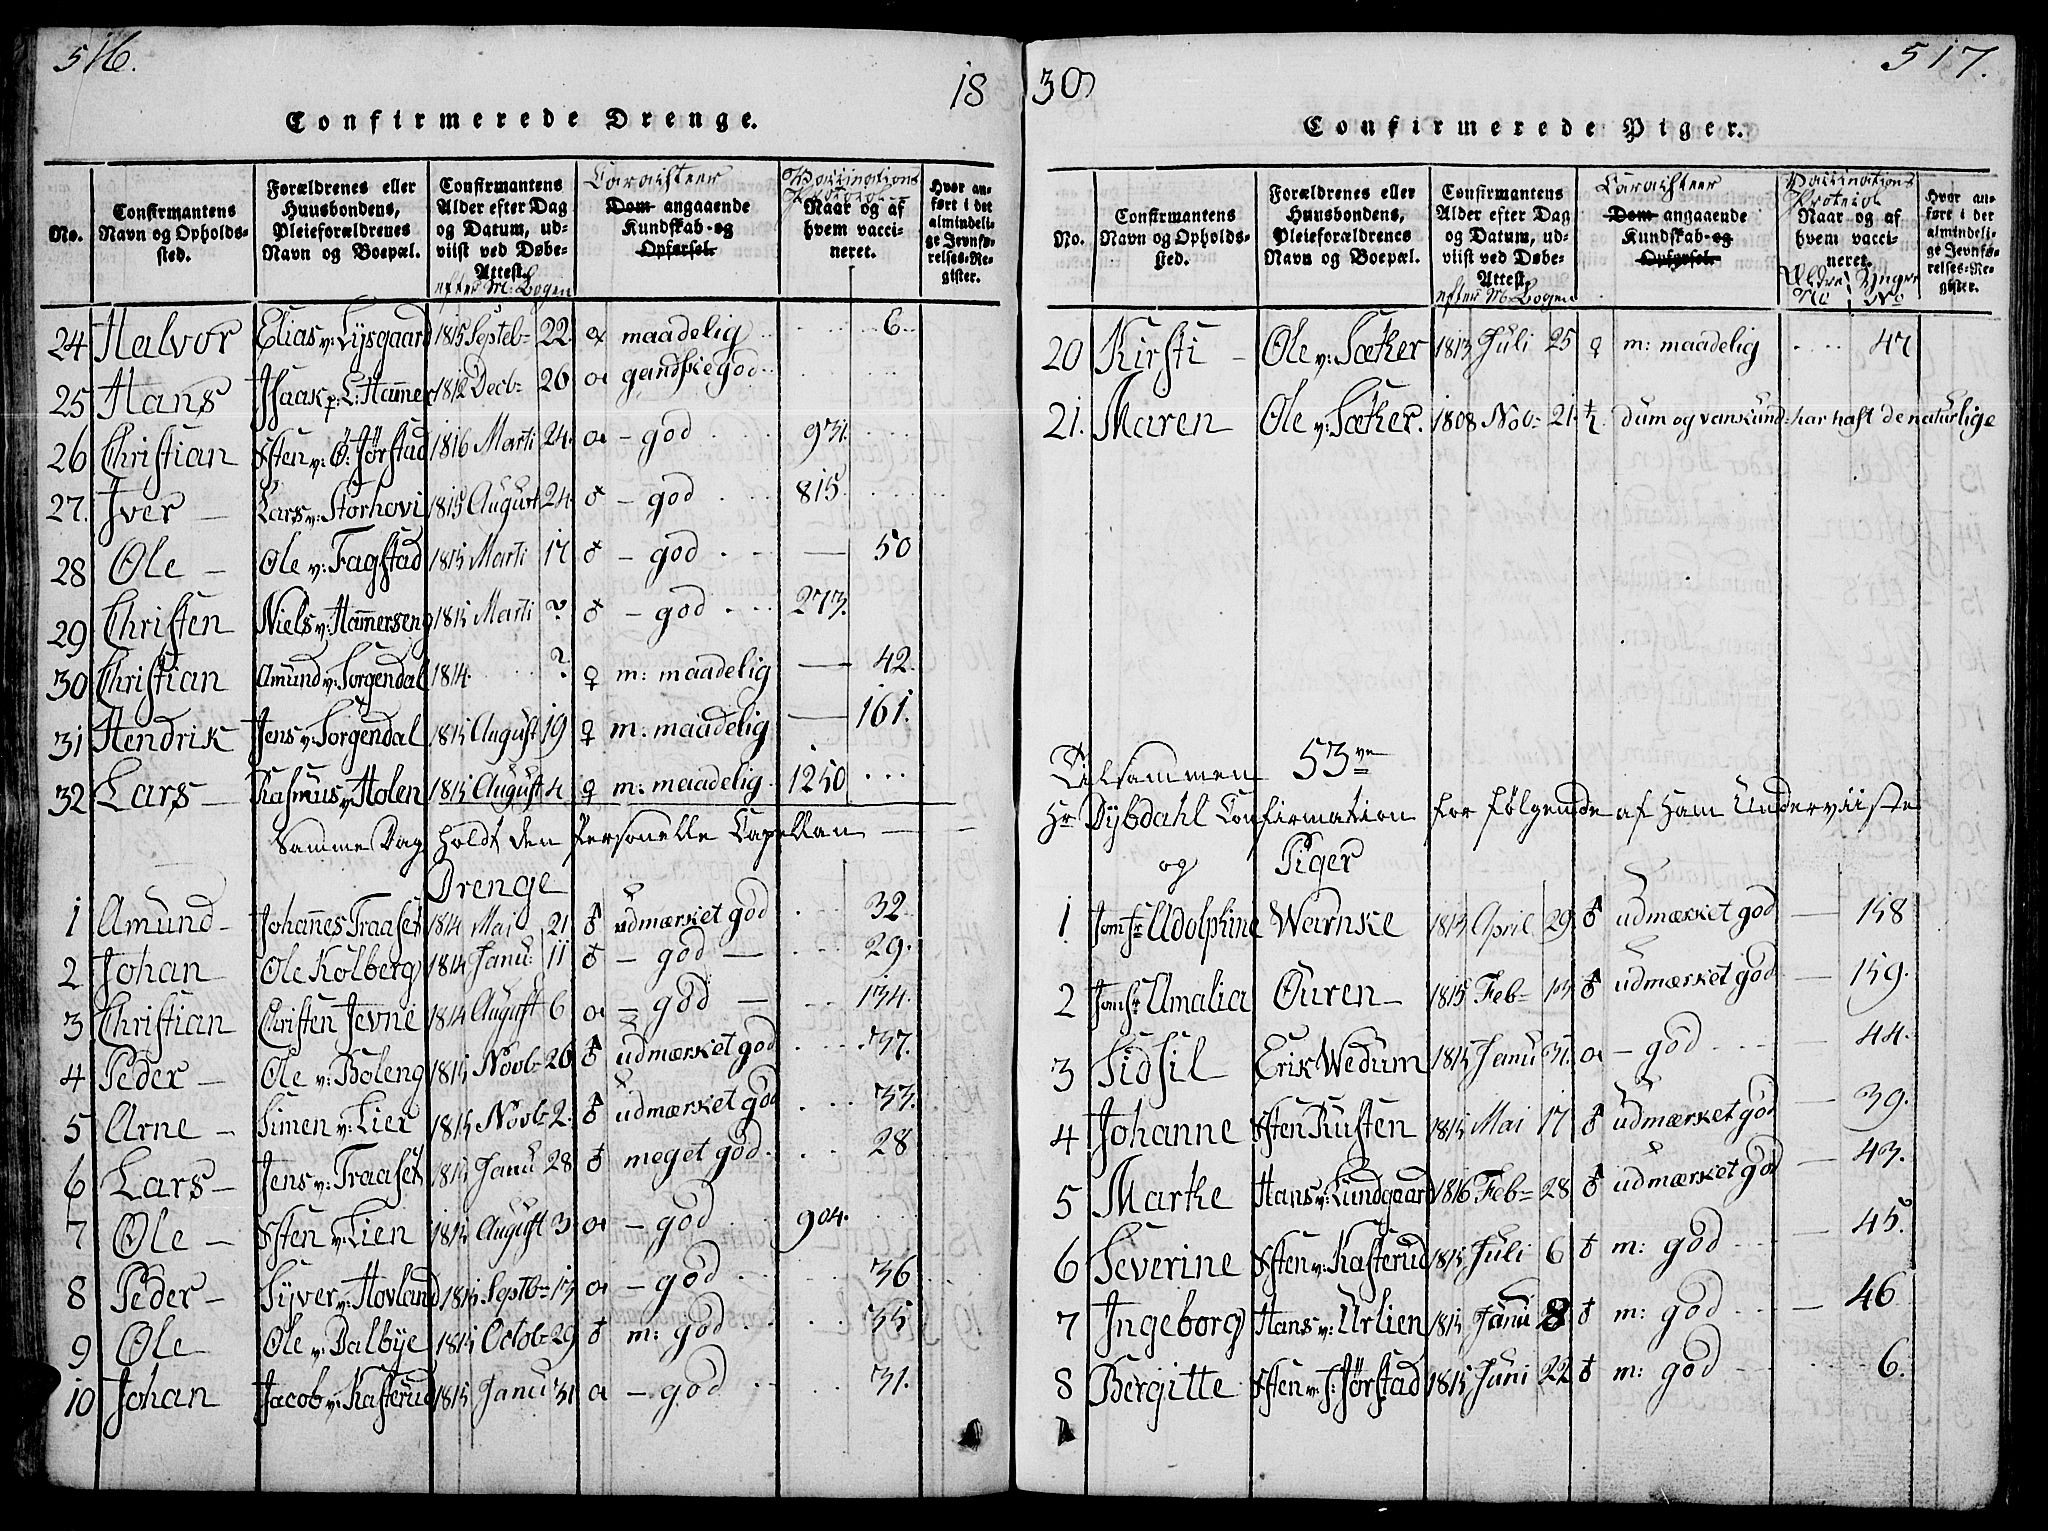 516.
18
Confirmerede Drenge.
No.
Confirmantens Navn og Opholdssted.
Forældrenes eller Huusbondens, Pleieforældrenes Navn og Boepæl.
Confirmantens Alder efter Dag og Datum, udviist ved Døbe-Attest.
efter M: Bogen
Caracteer
Dom angaaende Kundskab og Opførsel.
Vaccinations Protocol
Naar og af hvem vaccineret.
Hvor anført i det almindelige Jevnførelses-Register.
24 Halvor Elias v: Lysgaard 1815 Septeb- 22. maadelig 6.
25 Hans Isaak p: L: Hammer 1812 Decb- 26 gandske god
26 Christian Østen v: Ø: Jørstad 1816 Marti 24. - god 931.
27. Iver - Lars v: Storhovi 1815 August 24. ♂ - god 815.
28 Ole - Ole v: Fagstad 1815 Marti 17 ♂ - god — 50
29 Christen Niels v: Hammerseng 1815 Marti ? ♂ - god 273.
30 Christian Amund v: Sorgendal 1814. ? ♀ m: maadelig — 42.
31 Hendrik Jens v: Sorgendal 1815 August 19 ♀ m: maadelig — 161.
32 Lars - Rasmus v: Holen 1815 August 4 ♀ m: maadelig 1250
Samme Dag holdt den Personelle Capellan
Drenge
1 Amund - Johannes Traaset 1814 Mai 21 ♂ udmærket god 32
2 Johan Ole Kolberg 1814 Janu: 11 ♂ - god — 29.
3 Christian Christen Jevne 1814 August 6 - god — 134.
4 Peder - Ole v: Boleng 1815 Novb- 26 ♂ udmærket god 37.
5 Arne - Simen v: Lier 1815 Novb- 2. ♂ udmærket god 33.
6 Lars - Jens v: Traaset 1815 Janu 28 ♂ meget god 28
7 Ole - Østen v: Lien 1815 August 3 - god 904.
8 Peder - Syver v: Hovland 1815 Septb- 13 - god 36
9 Ole Ole v: Dalbye 1815 Octob- 29 ♂ m: god 35
10 Johan Jacob v: Kasterud 1815 Janu 31 - god 31.
30
517.
Confirmerede Piger.
No.
Confirmantens Navn og Opholdssted.
Forældrenes eller Huusbondens, Pleieforældrenes Navn og Boepæl.
Confirmantens Alder efter Dag og Datum, udviist ved Døbe-Attest.
efter M: Bogen
Caracteer
Dom angaaende Kundskab og Opførsel.
Vaccinations Protocol
Naar og af hvem vaccineret.
Ældre No Yngre No
Hvor anført i det almindelige Jevnførelses-Register.
20 Kirsti - Ole v: Sæter 1813 Juli 25 ♀ m: maadelig 47
21. Maren Ole v: Sæter. 1808 Nov- 21 dum og vankund- har haft de naturlige
Tilsammen 53ve
Hr Dybdahl Confirmation for følgende af Ham Underviiste
og Piger
1 Jomfr Adolphine Warnke 1813 April 29. ♂ udmærket god — 158
2 Jomfr Amalia Ouren - 1815 Feb- 13 ♂ udmærket god — 159.
3 Sidsil Erik Wedum 1815 Janu 31. - god 44.
4 Johanne Østen Rusten 1815 Mai 17 ♂ udmærket god — 39.
5 Marthe Hans v: Lundgaard 1816 Feb- 28 ♂ udmærket god — 43.
6 Severine Østen v: Kasterud 1815 Juli 6 ♂ m: god — 45.
7 Ingeborg Hans v: Urlien 1815 Janu 8 ♂ m: god — 46
8 Bergitte Østen v: J: Jørstad 1815 Juni 22 ♂ m: god 6.